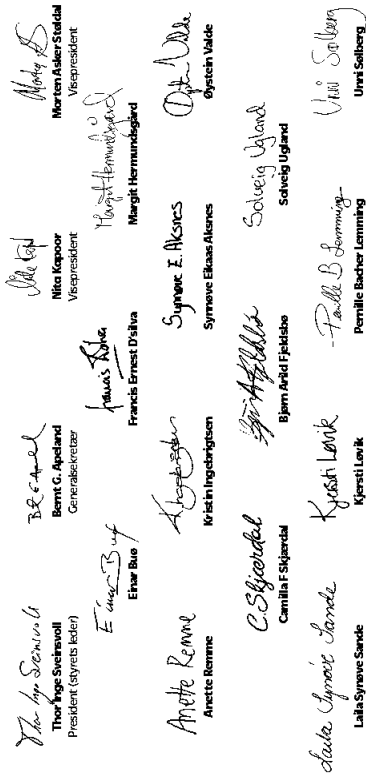 Thor Inge Sveinsvoll
Thor Inge Sveinsvoll
President (styrets leder)
Bernt G. Apeland
Generalsekretær
Nita Kapoor
Visepresident
Morten Asker Stødal
Visepresident
Einar Buø
Einar Buø
Francis Ernest D'silva
Margit Hermundsgård
Margit Hermundsgård
Anette Remme
Anette Remme
Kristin Ingebrigtsen
Synnøve E. Aksnes
Synnøve Eikaas Aksnes
Øystein Valde
Øystein Valde
C. Skjærdal
Camilla F Skjærdal
Bjørn Arild Fjeldsbø
Solveig Ugland
Solveig Ugland
Laila Synøve Sande
Laila Synøve Sande
Kjersti Løvik
Kjersti Løvik
Pernille B Lemming
Pernille Bacher Lemming
Unni Sølberg
Unni Sølberg